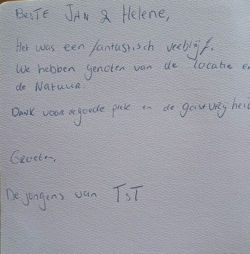 Beste Jan & Helene,
Het was een fantastisch verblijf.
We hebben genoten van de locatie en
de Natuur.
Dank voor de goede en de gastvrijheid
Groeten,
De jongens van TST